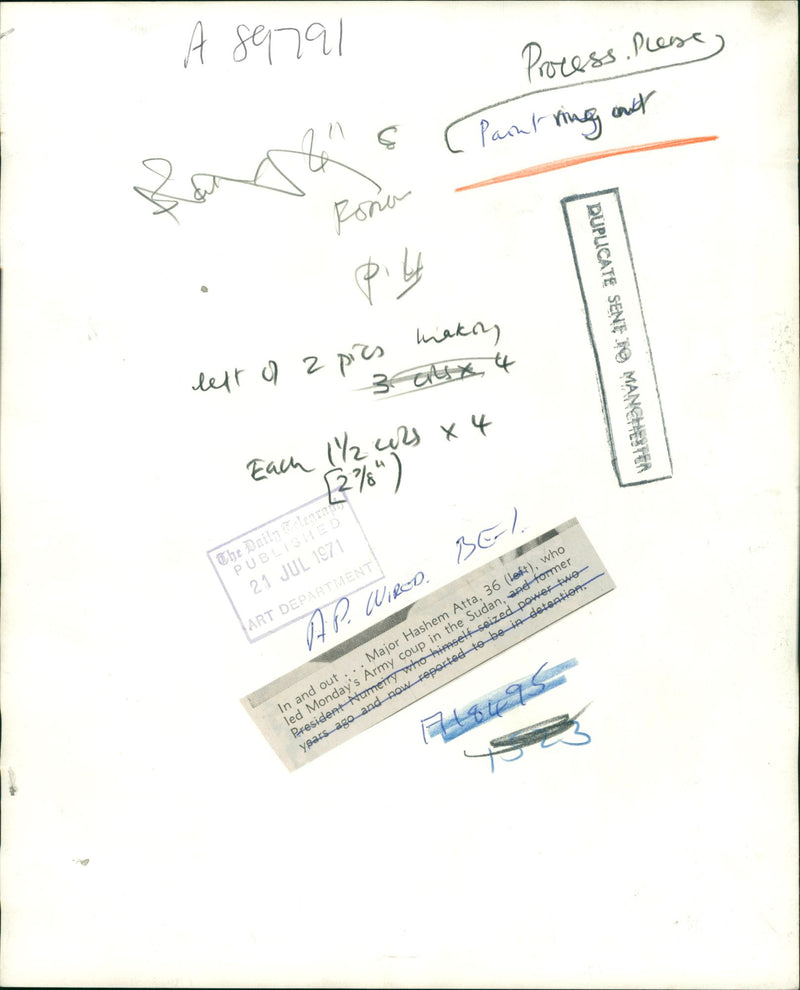 A 89791
Process. Please
Paint ring out
4"
P.4
left of 2 pics making
3 cols x 4
Each 1½ cols x 4
[2⅞")
DUPLICATE SENT TO MANCHESTER
The Daily Telegraph
PUBLISHED
21 JUL 1971
ART DEPARTMENT
AP. WIRED. BE-1.
In and out . . . Major Hashem Atta, 36 (left), who
led Monday's Army coup in the Sudan, and former
President Numeiry who himself seized power two
years ago and now reported to be in detention.